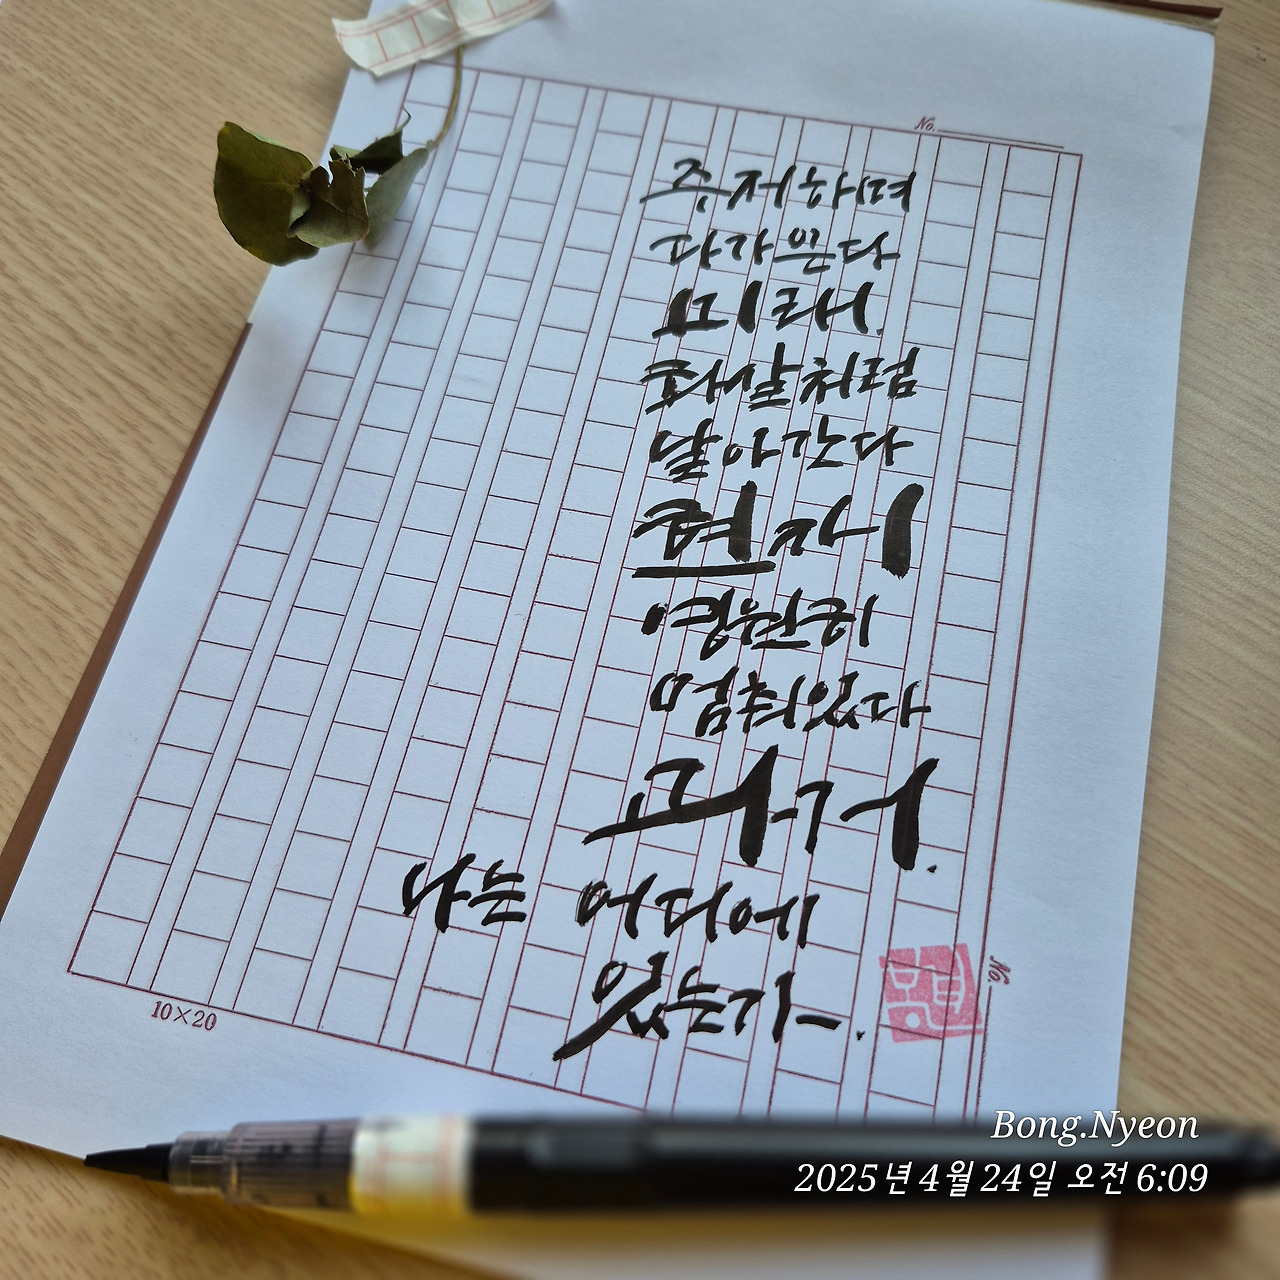 No.
주저하며
다가온다
미래.
화살처럼
날아간다
현재
영원히
멈춰있다
과거.
나는 어디에
있는가.
No.
10×20
Bong.Nyeon
2025년 4월 24일 오전 6:09